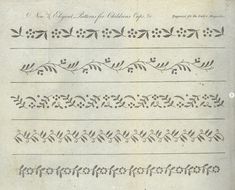 New & Elegant Patterns for Childrens Caps, &c Engraved for the Lady's Magazine